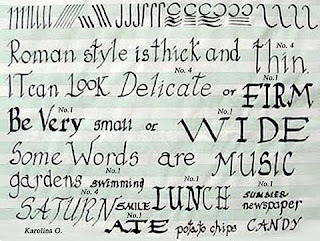 Roman style is thick and thin.
No. 4
IT can Look Delicate or FIRM
No. 1 No. 4 No. 1
Be Very small or WIDE
No. 1 No. 1
Some Words are MUSIC
gardens swimming LUNCH SUMMER newspaper
No. 4 No. 1
SATURN SMILE ATE potato chips CANDY
No. 1
Karolina G.